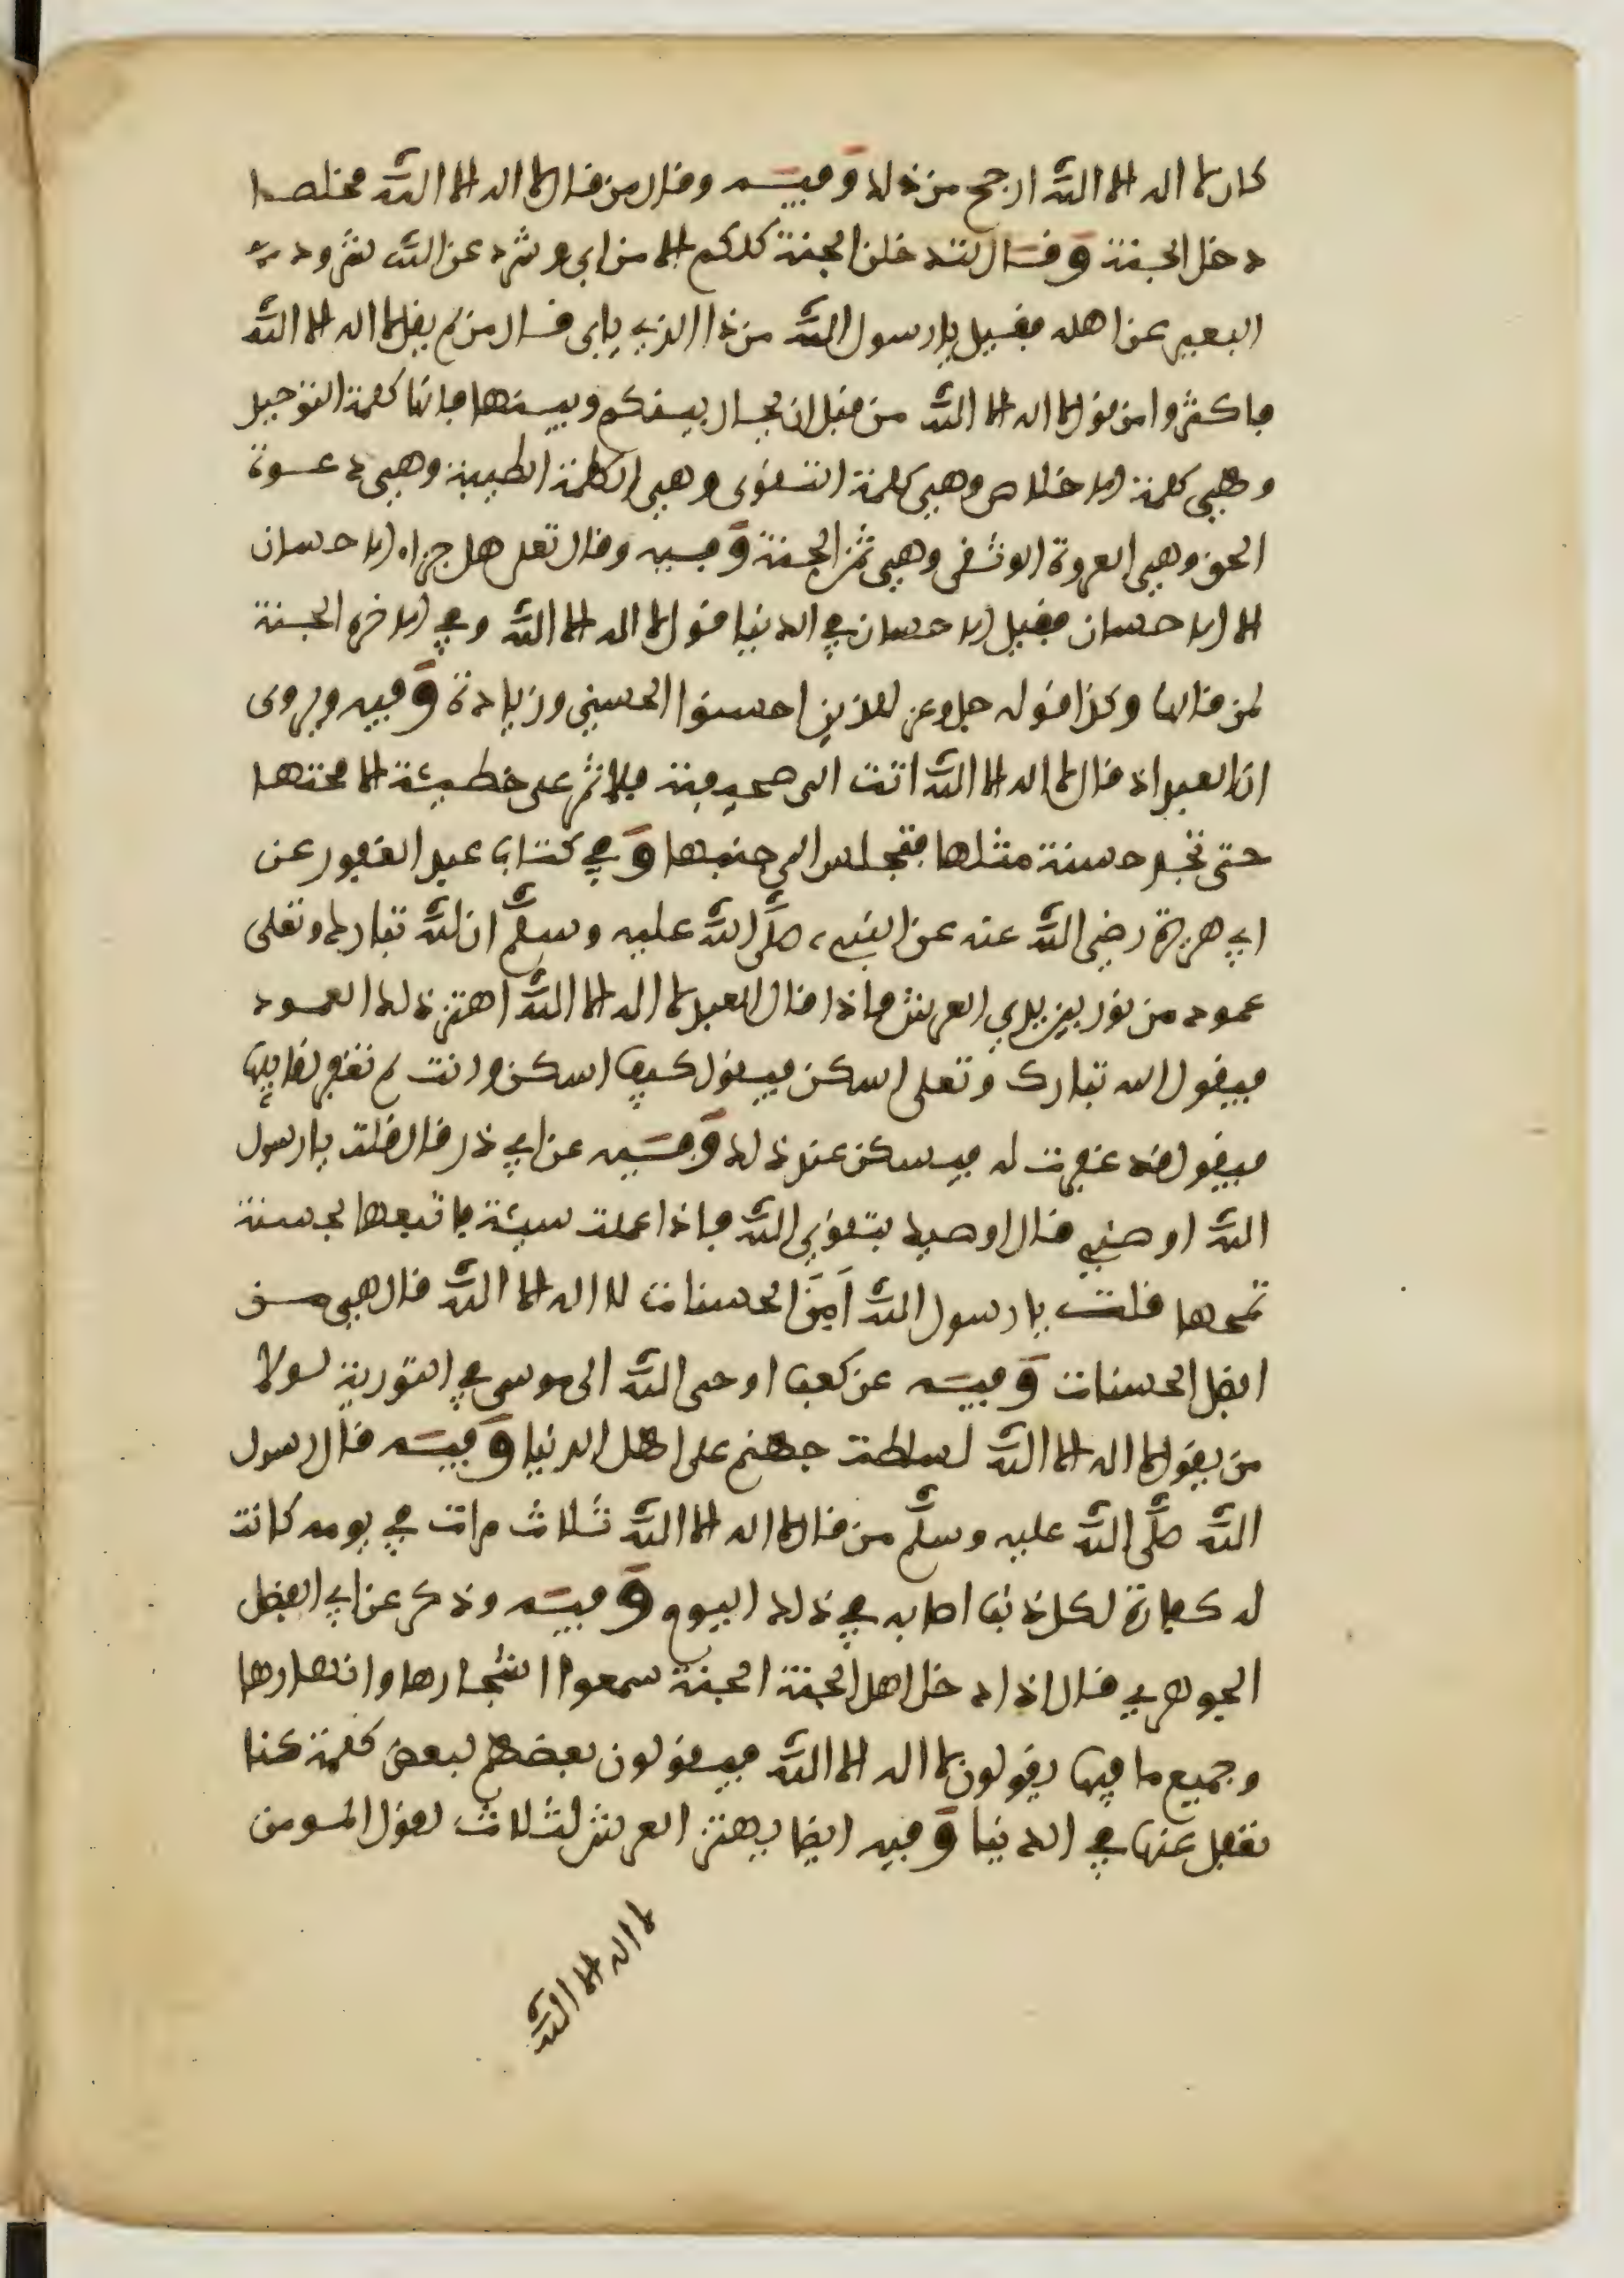 كان لا اله الا اللّه ارجح من ذلك وفيه وقال من قال لا اله الا اللّه مخلصا
دخل الجنة وقال لتدخلن الجنة كلكم الا من ابى وشرد عن اللّه شرود
البعير عن اهله فقيل يا رسول اللّه من ذا الذي يابى قال من لم يقل لا اله الا اللّه
فاكثروا من قول لا اله الا اللّه من قبل ان يحال بينكم وبينها فانها كلمة التوحيد
وهي كلمة الاخلاص وهي كلمة التقوى وهي الكلمة الطيبة وهي دعوة
الحق وهي العروة الوثقى وهي ثمن الجنة وفيه وقال تعلى هل جزاء الاحسان
الا الاحسان فقيل الاحسان في الدنيا قول لا اله الا اللّه وفي الاخرة الجنة
لمن قالها وكذا قوله جل وعز للذين احسنوا الحسنى وزيادة وفيه ويروى
ان العبد اذ قال لا اله الا اللّه اتت الى صحيفته فلا تمر على خطيئة الا محتها
حتى تجد حسنة مثلها فتجلس الى جنبها وفي كتاب عبد الغفور عن
ابي هريرة رضي اللّه عنه عن النبي صلَّى اللّه عليه وسلَّم ان للّه تبارك وتعلى
عمود من نور بين يدي العرش فاذا قال العبد لا اله الا اللّه اهتز ذلك العمود
فيقول الله تبارك وتعلى اسكن فيقول كيف اسكن ولم تغفر لقايلها
فيقول قد غفرت له فيسكن عند ذلك وفيه عن ابي ذر قال قلت يا رسول
اللّه اوصني قال اوصيك بتقوى اللّه فاذا عملت سيئة فاتبعها بحسنة
تمحها قلت يا رسول اللّه اَمِنَ الحسنات لا اله الا اللّه قال هي من
افضل الحسنات وفيه عن كعب اوحى اللّه الى موسى في التورية لولا
من يقول لا اله الا اللّه لسلطت جهنم على اهل الدنيا وفيه قال رسول
اللّه صلَّى اللّه عليه وسلَّم من قال لا اله الا اللّه ثلاث مرات في يومه كانت
له كفارة لكل ذنب اصابه في ذلك اليوم وفيه وذكر عن ابي الفضل
الجوهري قال اذا دخل اهل الجنة الجنة سمعوا اشجارها وانهارها
وجميع ما فيها يقولون لا اله الا اللّه فيقولون بعضهم لبعض كلمة كنا
نغفل عنها في الدنيا وفيه ايضا يهتز العرش لثلاث لقول المومن
لا اله الا اللّه